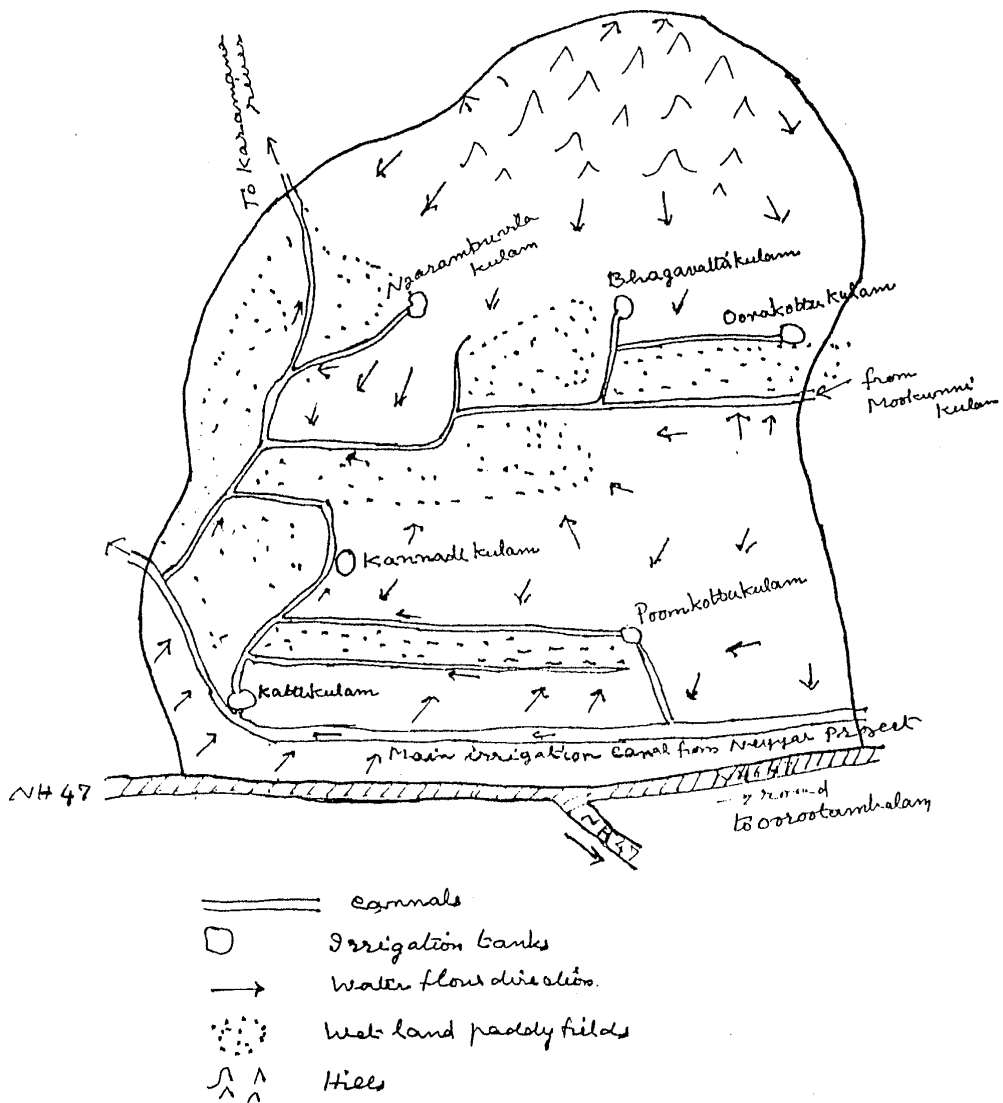 To Karamana
river
Ngarambuvila
kulam
Bhagavattákulam
Oorakottukulam
from
Mookunni
kulam
Kannadi kulam
Poomkottukulam
Kattukulam
Main irrigation Canal from Neyyar Project
NH 47
to oorootambalam
NH 47
cannals
Irrigation tanks
Water flow direction.
Wet land paddy fields
Hills